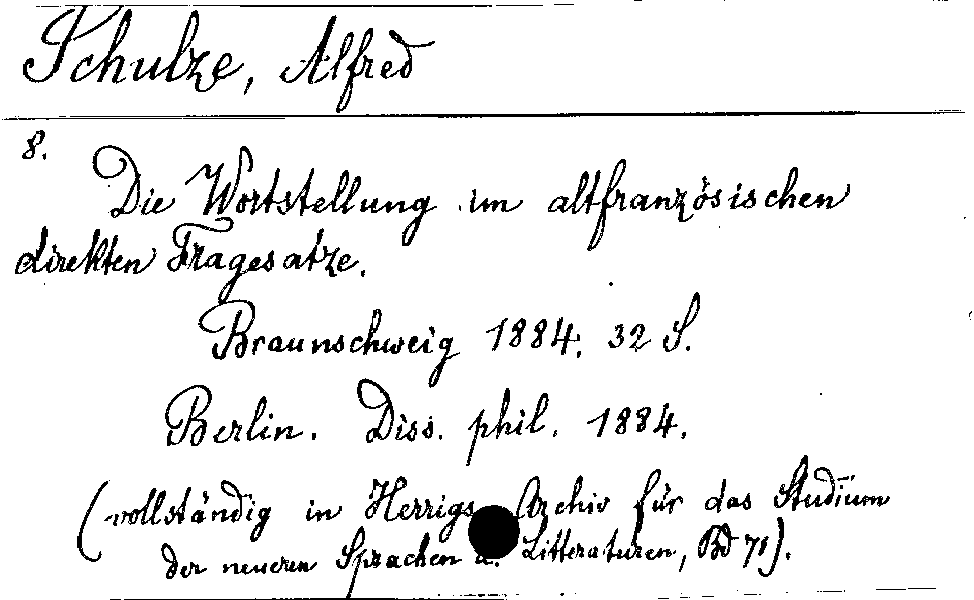 Schulze, Alfred
8.
Die Wortstellung im altfranzösischen
direkten Fragesatze.
Braunschweig 1884. 32 S.
Berlin. Diss. phil. 1884.
(vollständig in Herrigs Archiv für das Studium
der neueren Sprachen u. Litteraturen, Bd 71).